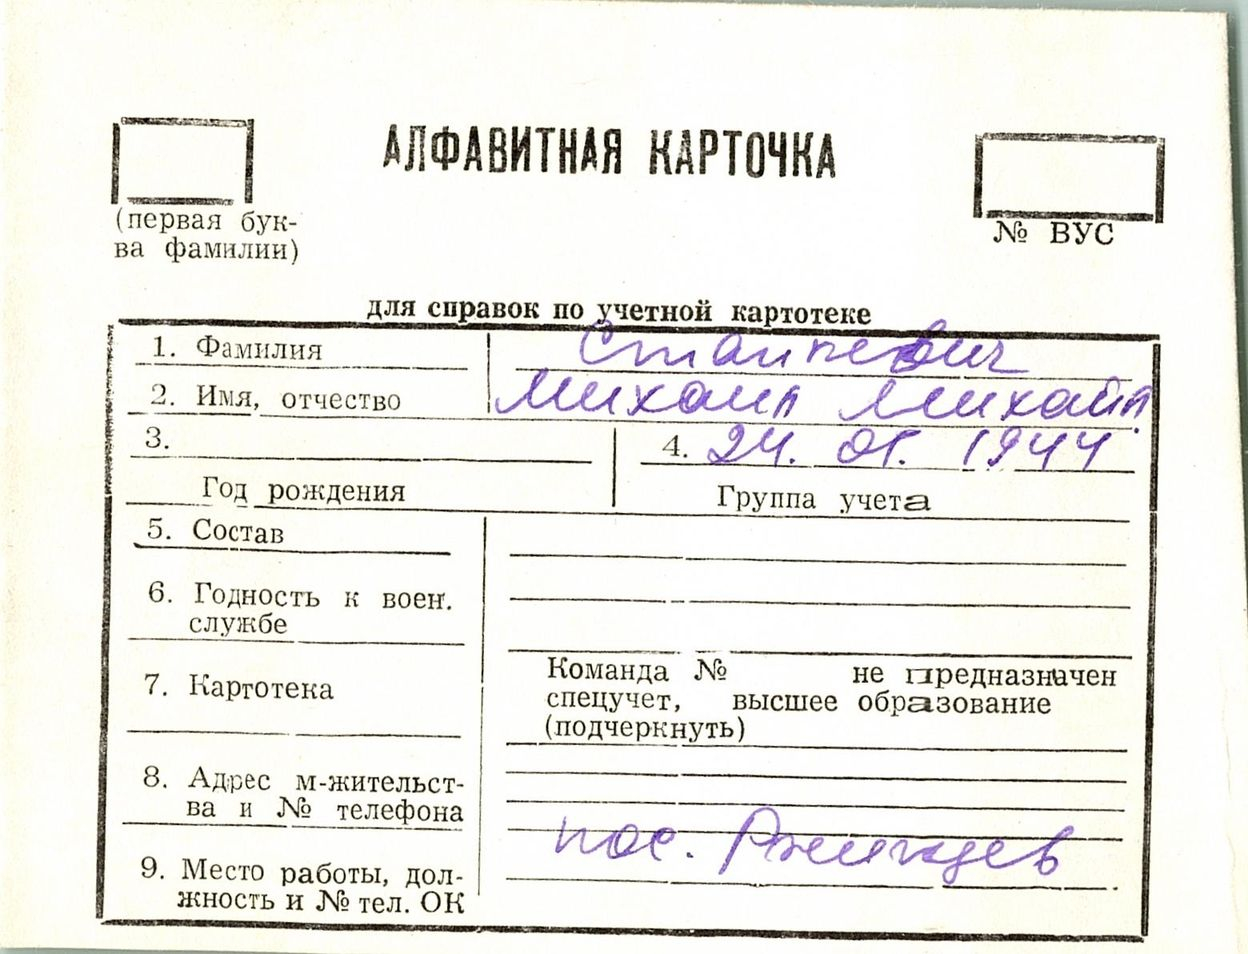 АЛФАВИТНАЯ КАРТОЧКА
(первая бук-
ва фамилии)
№ ВУС
для справок по учетной картотеке
1. Фамилия Станкевич
2. Имя, отчество Михаил Михайл.
3.
4. 24. 01. 1944
Год рождения
Группа учета
5. Состав
6. Годность к воен.
службе
7. Картотека
Команда № не предназначен
спецучет, высшее образование
(подчеркнуть)
8. Адрес м-жительст-
ва и № телефона
пос.
9. Место работы, дол-
жность и № тел. ОК